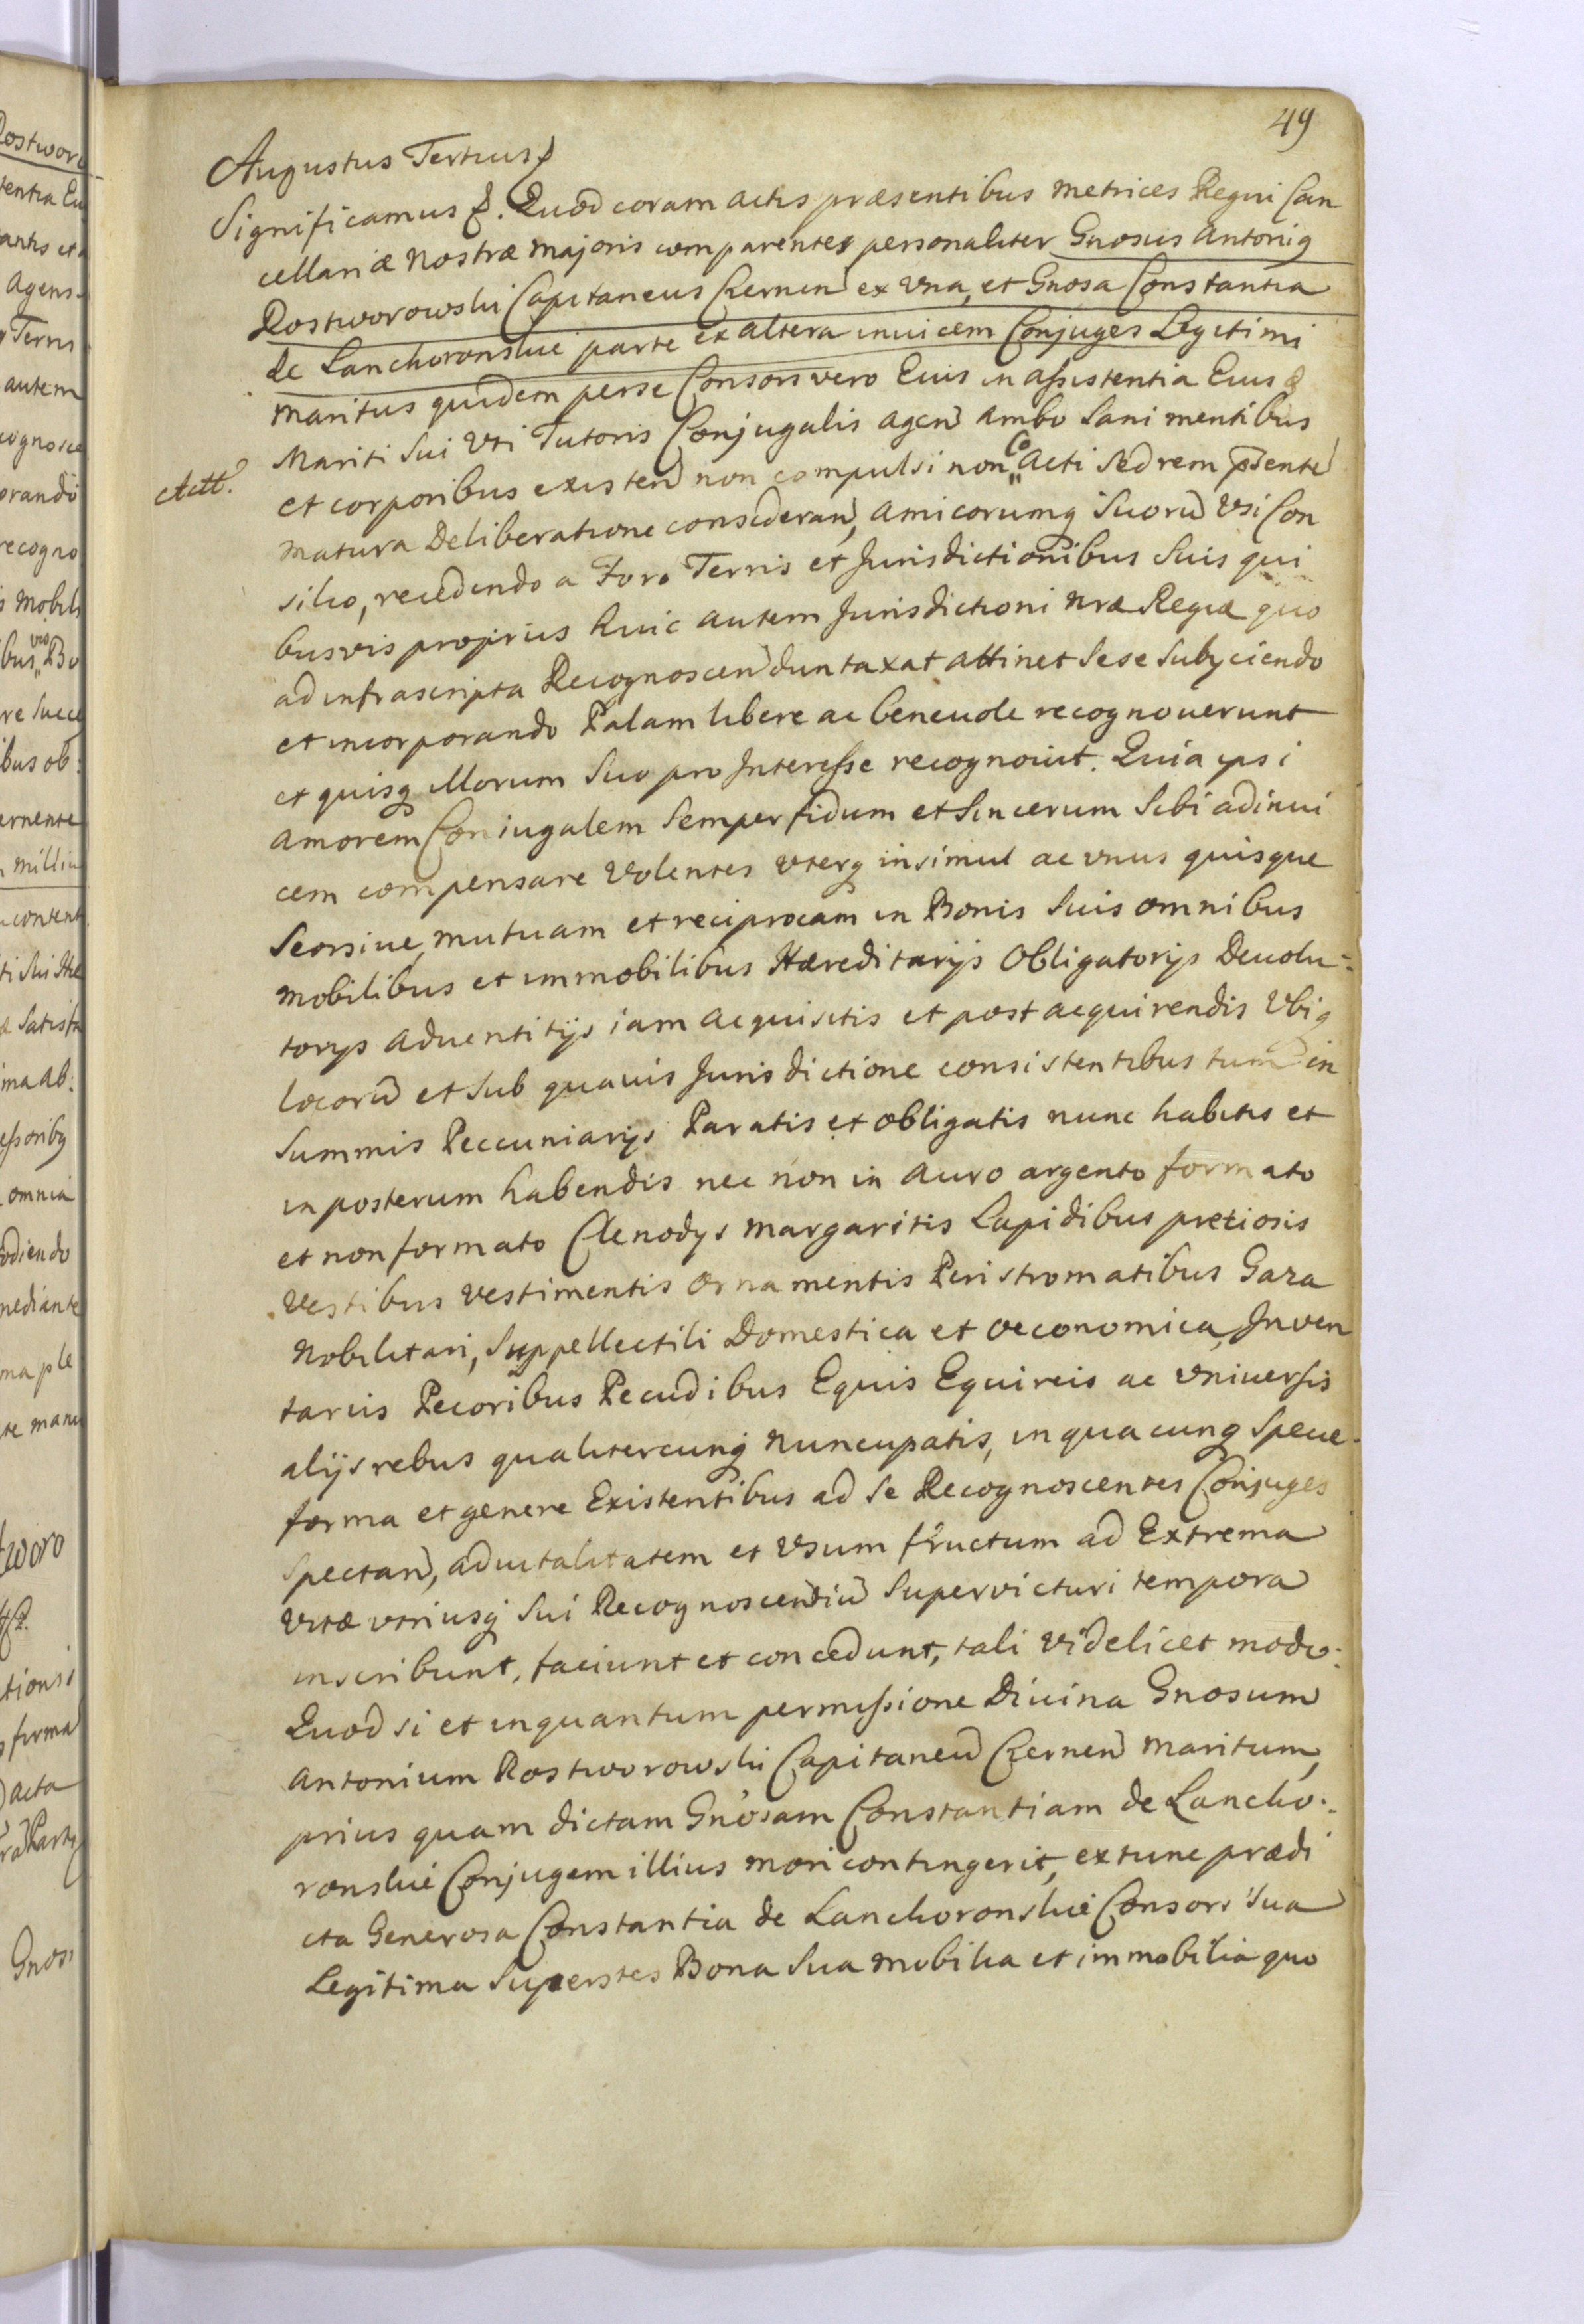 49
Augustus Tertius &
Significamus &. Quod coram actis præsentibus Metrices Regni Can
cellariæ Nostræ Majoris comparentes personaliter Gnosus Antoniq
Rostworowski Capitaneus Czernen ex Vna, et Gnosa Constantia
de Lanckoronskie parte ex altera inuicem Conjuges Legitimi
maritus quidem per se Consors vero Eius in assistentia Eiusd
Mariti Sui Vti Tutoris Conjugalis agen ambo Sani mentibus
Actt.
et corporibus existen non compulsi non Co acti Sed rem psente
matura Deliberatione consideran, amicorumq Suorū Vsi Con
silio, recedendo a Foro Terris et Jurisdictionibus Suis qui
busvis proprius huic autem Jurisdictioni nræ Regiæ quo
ad infrascripta Recognoscen duntaxat attinet Sese Subijciendo
et incorporando Palam libere ac beneuole recognouerunt
et quisq illorum Suo pro Interesse recognovit. Quia ipsi
amorem Coniugalem Semper fidum et Sincerum Sibi adinui
cem compensare Volentes Vterq insimul ac vnus quisque
Seorsiue, mutuam et reciprocam in Bonis Suis omnibus
mobilibus et immobilibus Hæreditarijs Obligatorijs Deuolu-
torijs aduentitijs iam acquisitis et post acquirendis Vbiq
locorū et Sub quauis Jurisdictione consistentibus tum in
Summis Peccuniarijs Paratis et obligatis nunc habitis et
in posterum habendis nec non in auro argento formato
et non formato Clenodys Margaritis Lapidibus pretiosis
Vestibus vestimentis Ornamentis Peristromatibus Gaza
Nobilitari, Suppellectili Domestica et Oeconomica, Inven
tariis Pecoribus Pecudibus Equis Equireis ac Vniuersis
alijs rebus qualitercunq nuncupatis, in qua cunq Specie
forma et genere Existentibus ad Se Recognoscentes Conjuges
Spectan, aduitalitatem et Vsum fructum ad Extrema
Vitæ vtriusq Sui Recognoscentiū Supervicturi tempora
inscribunt, faciunt et concedunt, tali Videlicet modo:
Quod si et inquantum permissione Diuina Gnosum
Antonium Rostworowski Capitaneū Czernen Maritum,
prius quam dictam Gnosam Constantiam de Lancko-
ronskie Conjugem illius mori contingerit, extunc prædi
cta Generosa Constantia de Lanckoronskie Consors Sua
Legitima Superstes Bona Sua mobilia et immobilia quo